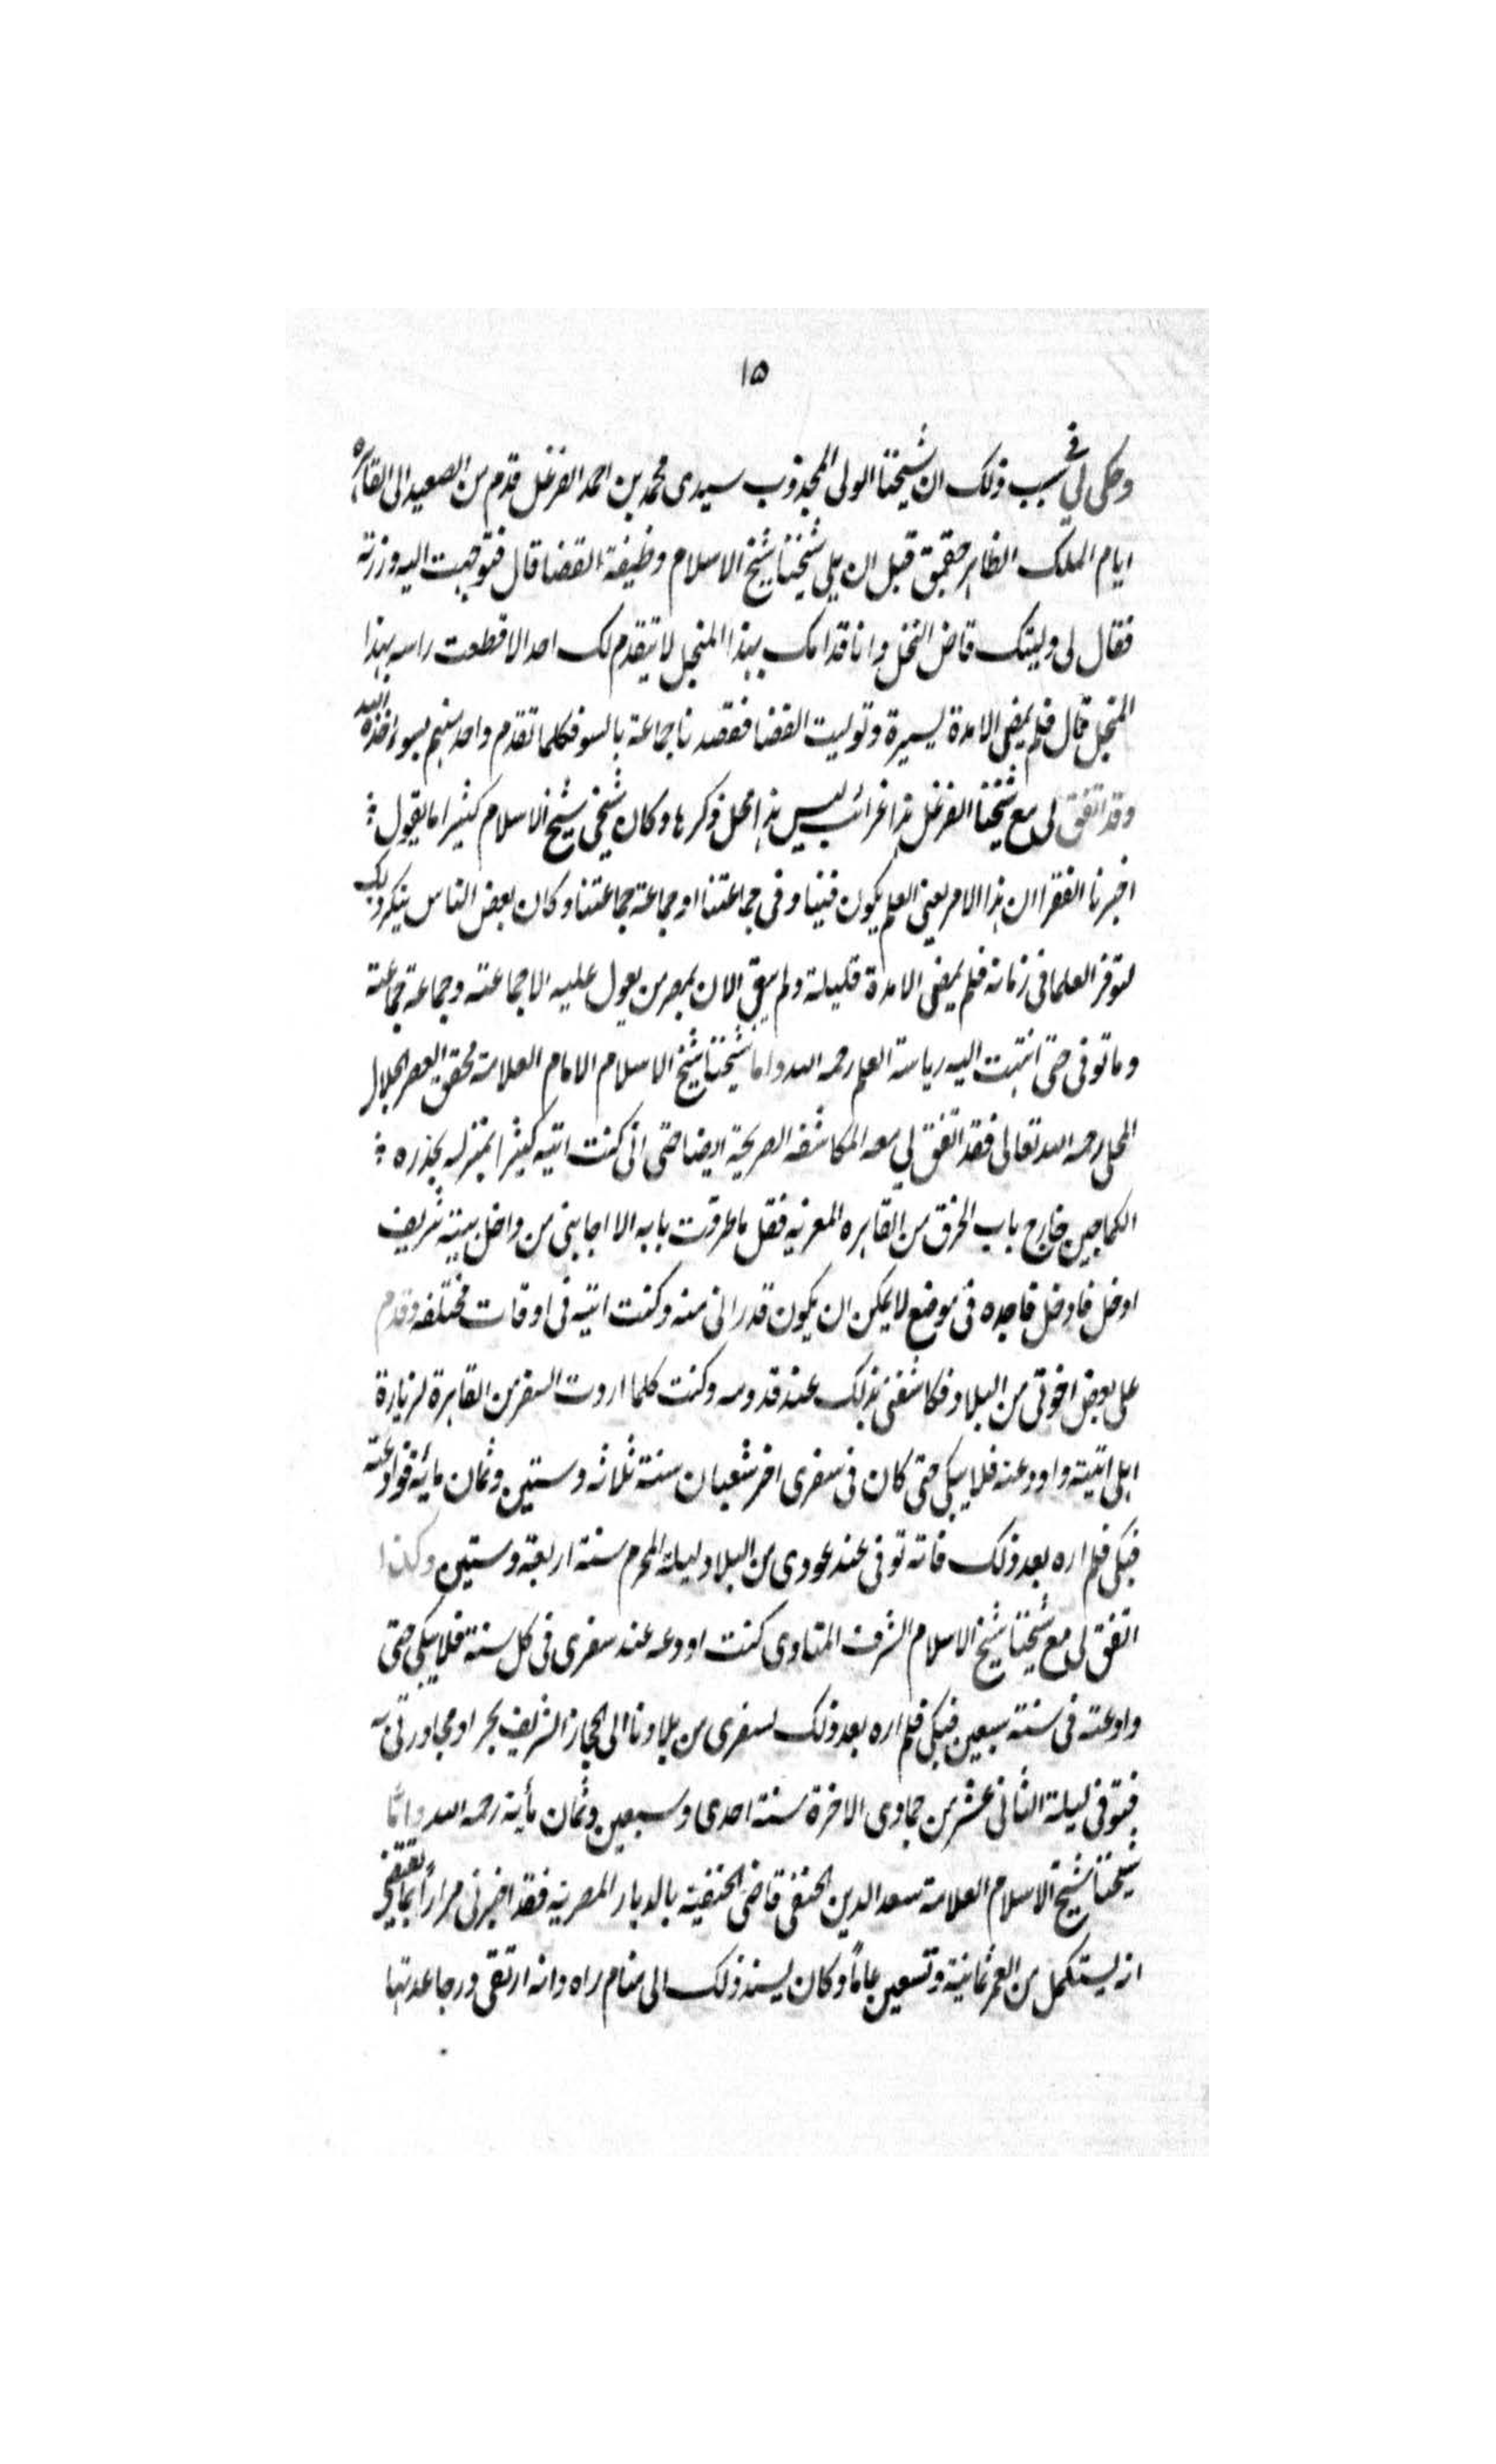 ١٥
وحكى لي في سبب ذلك ان شيخنا الولى المجذوب سيدى محمد بن احمد الفرغل قدم من الصعيد الى القاهره
ايام الملك الظاهر جقمق قبل ان يلي شيخنا شيخ الاسلام وظيفة القضا قال فتوجهت اليه وزرته
فقال لى وليتك قاض النخل وانا قدامك بهذا المنجل لا يتقدم لك احد الا قطعت راسه بهذا
المنجل قال فلم يمض الا مدة يسيرة وتوليت القضا فقصدنا جماعة بالسو فكلما تقدم واحد منهم بسوء اخذه الله
وقد اتفق لى مع شيخنا الفرغل هذا غرائب ليس هذا محل ذكرها وكان شيخى شيخ الاسلام كثيرا ما يقول :
اخبرنا الفقرا ان هذا الامر يعني العلم يكون فينا وفى جماعتنا او جماعة جماعتنا وكان بعض الناس ينكر ذلك
لتوفر العلما فى زمانه فلم يمض الا مدة قليلة ولم يبق الان بمصر من يعول عليه الا جماعته وجماعة جماعته
وما توفى حتى انتهت اليه رياسة العلم رحمه الله واما شيخنا شيخ الاسلام الامام العلامة محقق العصر الجلال
المحلى رحمه الله تعالى فقد اتفق لي معه المكاشفه الصريحة ايضا حتى انى كنت اتيه كثيرا بمنزله بحذره :
الكماجين خارج باب الخرق من القاهره المعزيه فقل ما طرقت بابه الا اجابنى من داخل بيته شريف
ادخل فادخل فاجده فى موضع لا يمكن ان يكون قد رانى منه وكنت اتيه فى اوقات مختلفه وقدم
على بعض اخوتى من البلاد فكاشفنى بذلك عند قدومه وكنت كلما اردت السفر من القاهرة لزيارة
اهلى اتيته واودعنه فلا يبكى حتى كان فى سفرى اخر شعبان سنة ثلاثه وستين وثمان مائة فوادعته
فبكى فلم اره بعد ذلك فانه توفى عند عودى من البلاد ليلة المحرم سنة اربعة وستين وكذا
اتفق لى مع شيخنا شيخ الاسلام الشرف المناوى كنت اودعه عند سفرى فى كل سنة فلا يبكى حتى
وادعته فى سنة سبعين فبكى فلم اره بعد ذلك لسفرى من بلادنا الى الحجاز الشريف بحرا ومجاورتى به
فتوفى ليلة الثانى عشر من جمادى الاخرة سنة احدى وسبعين وثمان مأية رحمه الله واما
شيخنا شيخ الاسلام العلامة سعد الدين الحنفى قاضى الحنفية بالديار المصريه فقد اخبرنى مرارا بما يقتضى
انه يستكمل من العمر ثمانية وتسعين عاما وكان يسند ذلك الى منام راه وانه ارتقى درجا عدتها